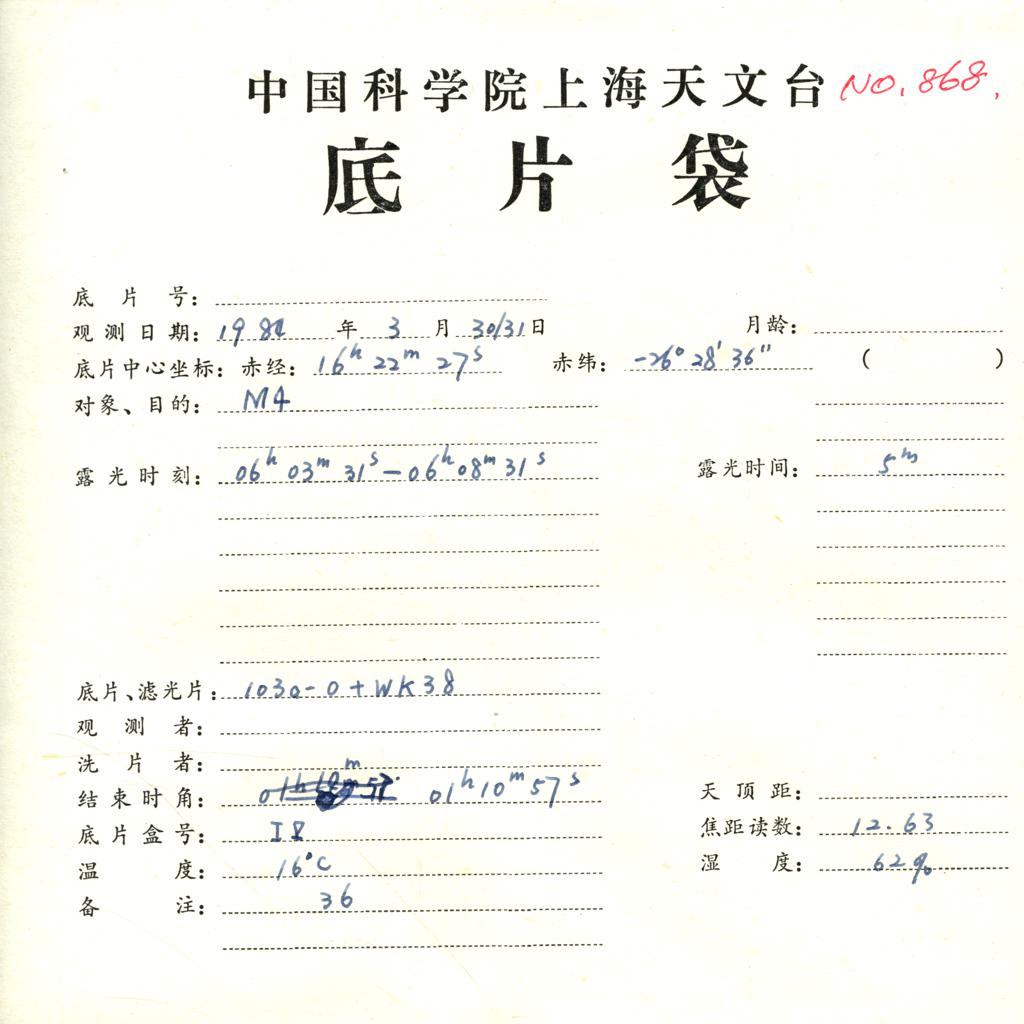 中国科学院上海天文台 NO.868.
底片袋
底片号：
观测日期：1984年3月30/31日 月龄：
底片中心坐标：赤经：16h 22m 27s 赤纬：-26° 28′ 36″ ( )
对象、目的：M4
露光时刻：06h 03m 31s — 06h 08m 31s 露光时间：5m
底片、滤光片：103a-O + WK38
观测者：
洗片者：
结束时角：01h 10m 57s 天顶距：
底片盒号：I8 焦距读数：12.63
温度：16°C 湿度：62%
备注：36